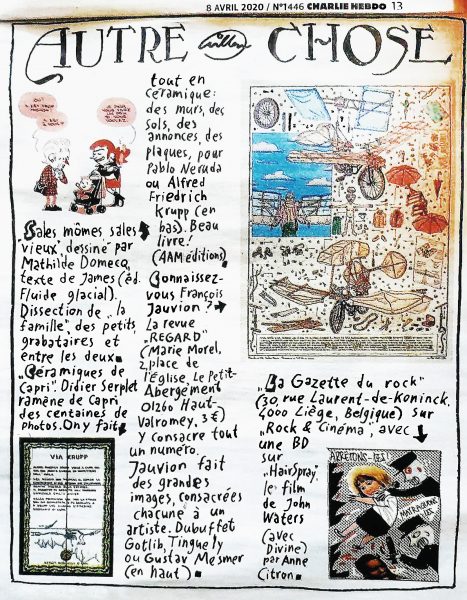 8 AVRIL 2020 / N°1446 CHARLIE HEBDO 13
AUTRE Willem CHOSE
Sales mômes sales
vieux", dessiné par
Mathilde Domecq,
texte de James (éd.
Fluide glacial).
Dissection de „la
famille", des petits
grabataires et
entre les deux.
„Céramiques de
Capri". Didier Serplet
ramène de Capri
des centaines de
photos. On y fait
VIA KRUPP
tout en
céramique:
des murs, des
sols, des
annonces, des
plaques, pour
Pablo Neruda
ou Alfred
Friedrich
Krupp (en
bas). Beau
livre!
(AAM éditions).
Connaissez-
vous François
Jauvion?
La revue
„REGARD"
(Marie Morel,
2, place de
l'Église, Le Petit-
Abergement
01260 Haut-
Valromey, 3 €)
y consacre tout
un numéro.
Jauvion fait
des grandes
images, consacrées
chacune à un
artiste. Dubuffet
Gotlib, Tinguely
ou Gustav Mesmer
(en haut).
„La Gazette du rock"
(30, rue Laurent-de-Koninck,
4000 Liège, Belgique) sur
„Rock & Cinéma", avec
une BD
sur
„HairSpray",
le film
de John
Waters
(avec
Divine)
par Anne
Citron.
ARRÊTONS-LES!